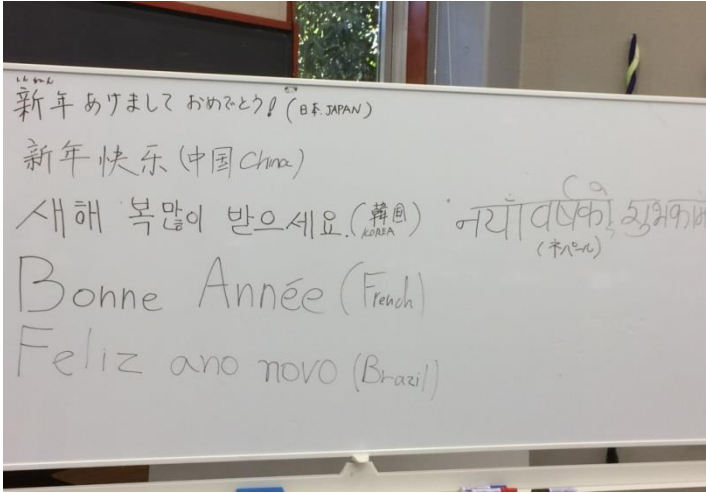 しんねん
新年あけましておめでとう！(日本.JAPAN)
新年快乐(中国China)
새해 복많이 받으세요.(韓国 KOREA)
नयाँ वर्षको शुभकाम
(ネパール)
Bonne Année (French)
Feliz ano novo (Brazil)